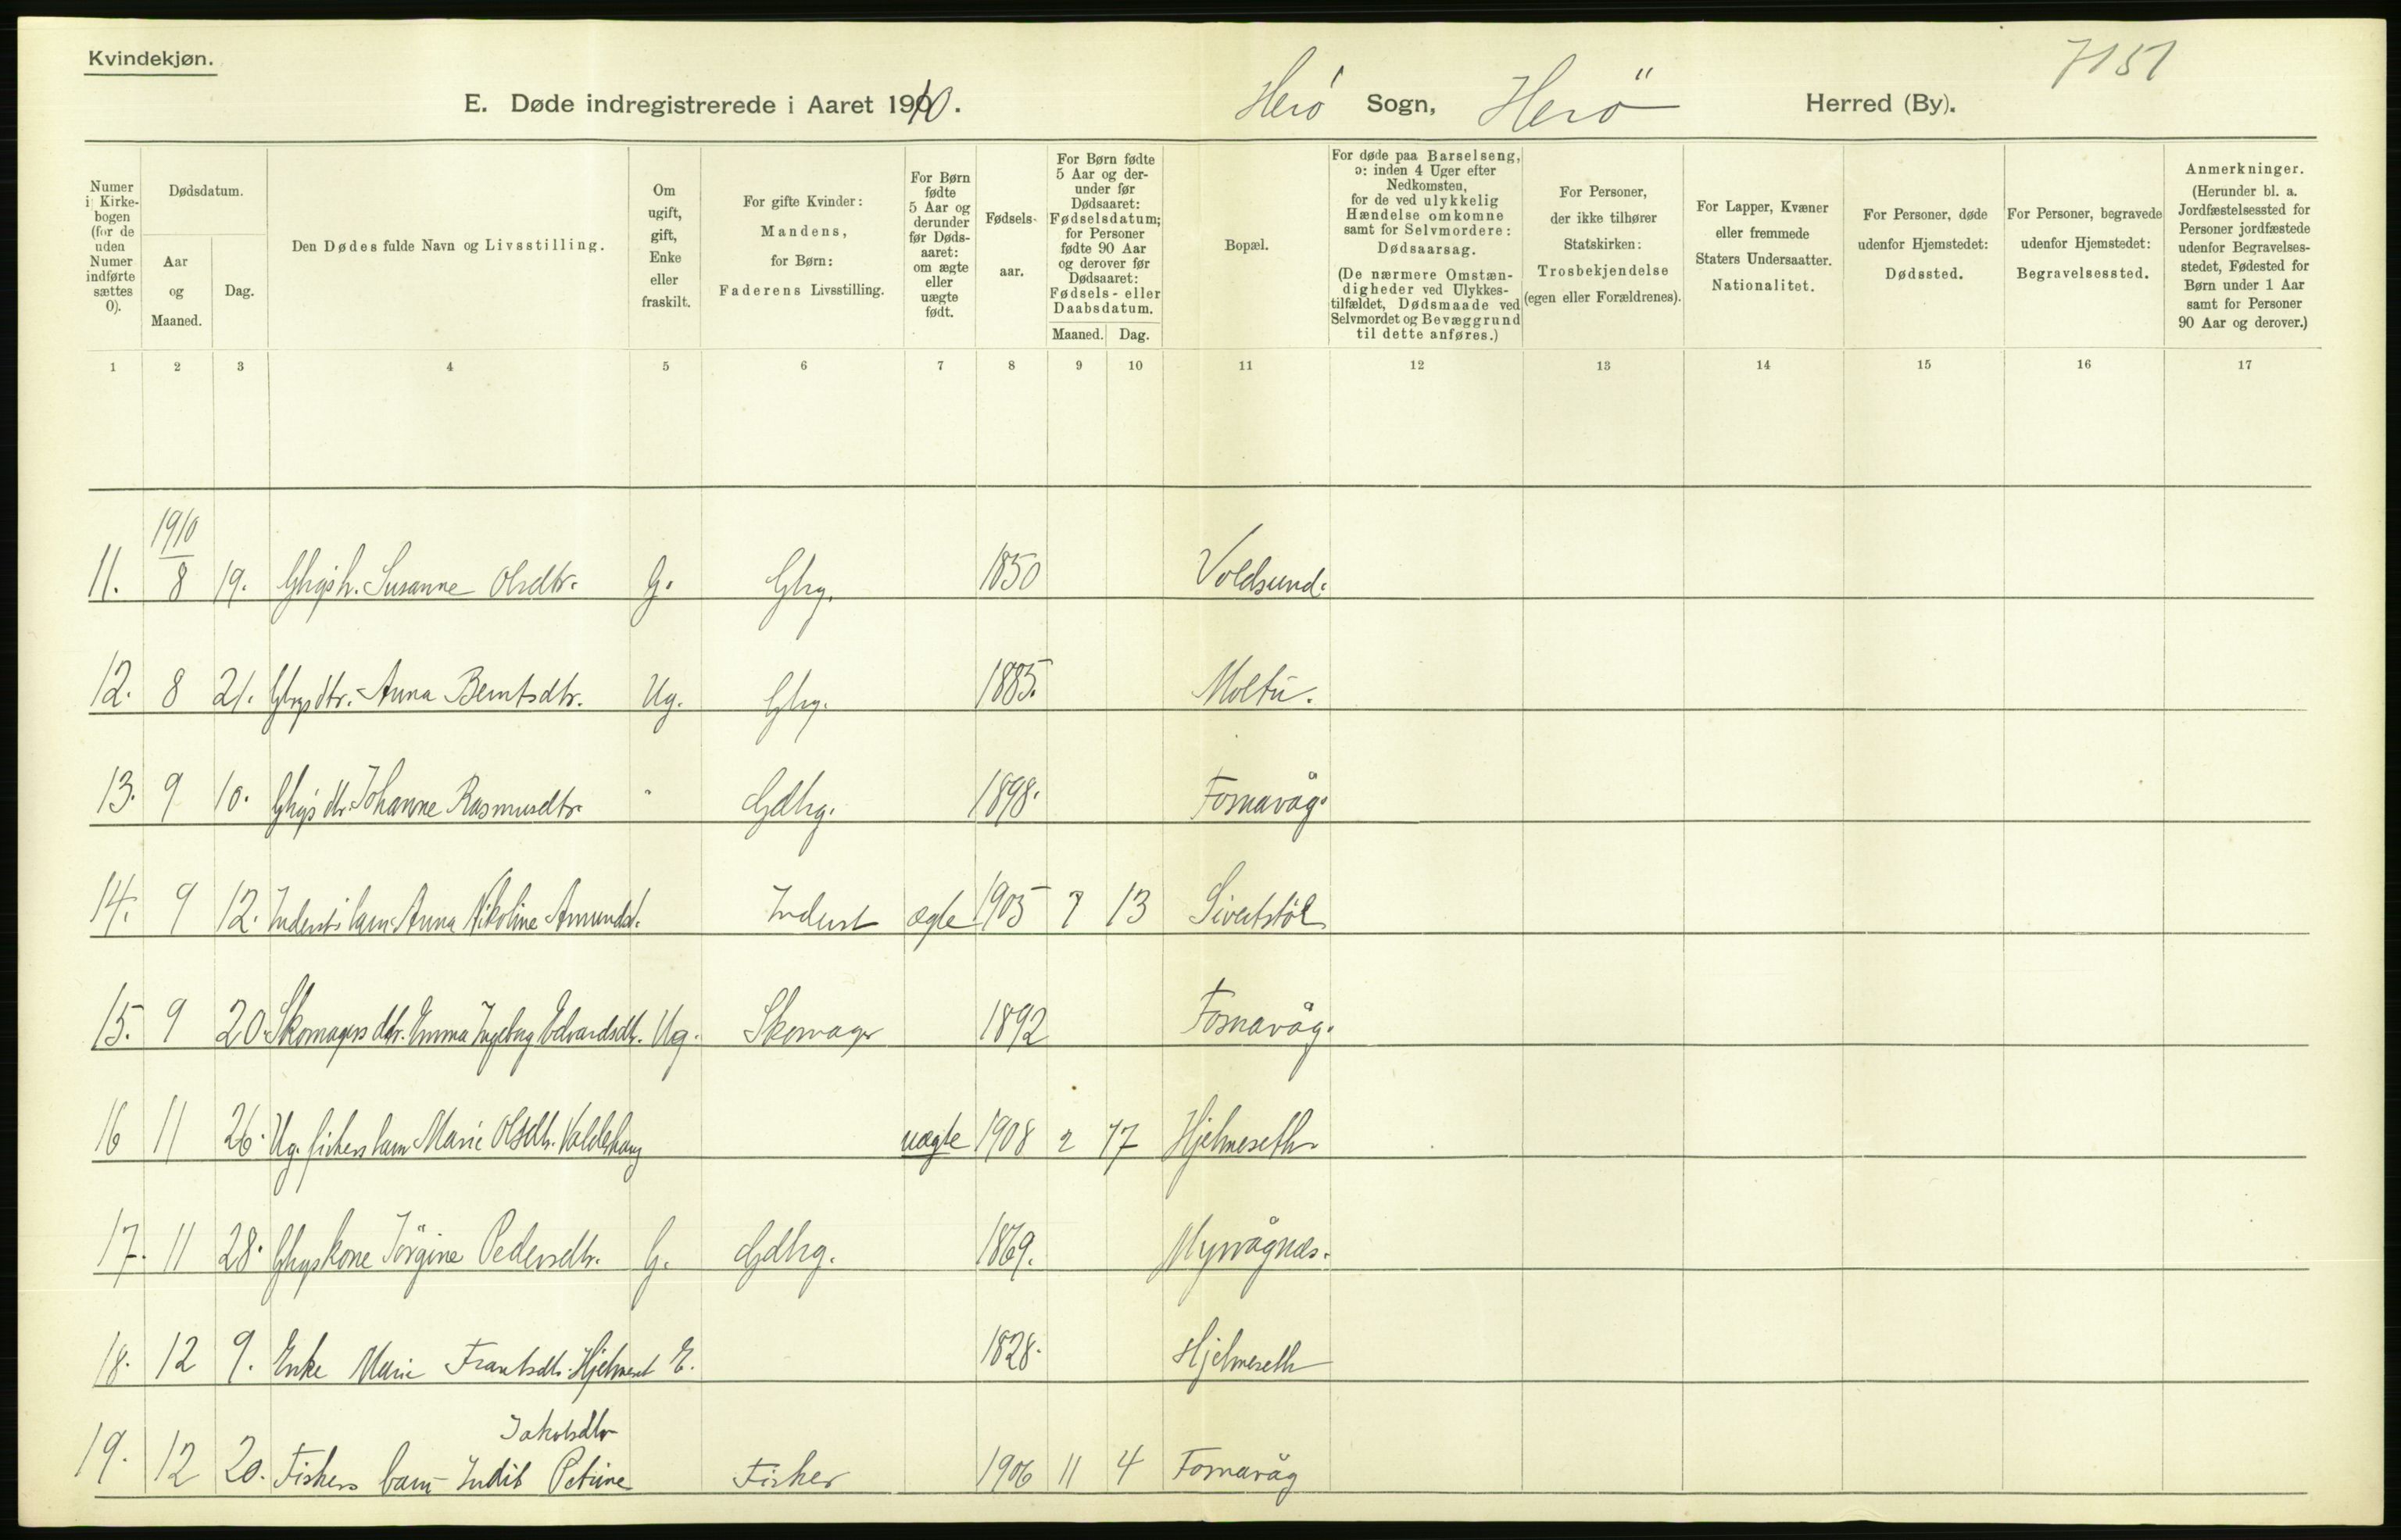 Kvindekjøn.
7151
E. Døde indregistrerede i Aaret 1910. Herø Sogn, Herö Herred (By).
Numer i Kirkebogen (for de uden Numer indførte sættes 0).
Dødsdatum.
Aar og Maaned.
Dag.
Den Dødes fulde Navn og Livsstilling.
Om ugift, gift, Enke eller fraskilt.
For gifte Kvinder: Mandens, for Børn: Faderens Livsstilling.
For Børn fødte 5 Aar og derunder før Dødsaaret: om ægte eller uægte født.
Fødselsaar.
For Børn fødte 5 Aar og derunder før Dødsaaret: Fødselsdatum; for Personer fødte 90 Aar og derover før Dødsaaret: Fødsels- eller Daabsdatum.
Maaned. Dag.
Bopæl.
For døde paa Barselseng, ɔ: inden 4 Uger efter Nedkomsten, for de ved ulykkelig Hændelse omkomne samt for Selvmordere: Dødsaarsag.
(De nærmere Omstændigheder ved Ulykkestilfældet, Dødsmaade ved Selvmordet og Bevæggrund til dette anføres.)
For Personer, der ikke tilhører Statskirken: Trosbekjendelse (egen eller Forældrenes).
For Lapper, Kvæner eller fremmede Staters Undersaatter. Nationalitet.
For Personer, døde udenfor Hjemstedet: Dødssted.
For Personer, begravede udenfor Hjemstedet: Begravelsessted.
Anmerkninger. (Herunder bl. a. Jordfæstelsessted for Personer jordfæstede udenfor Begravelsesstedet, Fødested for Børn under 1 Aar samt for Personer 90 Aar og derover.)
1 2 3 4 5 6 7 8 9 10 11 12 13 14 15 16 17
1910
11. 8 19. Susanne Olsdtr. G. Gbrg. 1850 Voldsund.
12. 8 21. Gbrgs dtr. Anna Berntsdtr. Ug. Gbrg. 1885. Moltu.
13. 9 10. Gbrgs dtr. Johanne Rasmusdtr. " Gdbrg. 1898. Fosnavåg.
14. 9 12. Inderst's barn Anna Nikoline Amundsd. Inderst ægte 1905 7 13 Sivertstöl
15. 9 20. Skomagers dtr. Emma Ingeborg Edvardsdtr. Ug. Skomager 1892 Fosnavåg.
16 11 26. Ug. fiskers barn Marie Olsdtr. uægte 1908 2 17 Hjelmeseth
17. 11 28. Gbrgs kone Jörgine Pedersdtr. G. Gdbrg. 1869. Myrvågnæs.
18. 12 9. Enke Marie Frantsdtr. Hjelmeset E. 1828. Hjelmeseth
Jakobsdtr
19. 12 20. Fiskers barn Indit Petrine Fisker 1906 11 4 Fosnavåg